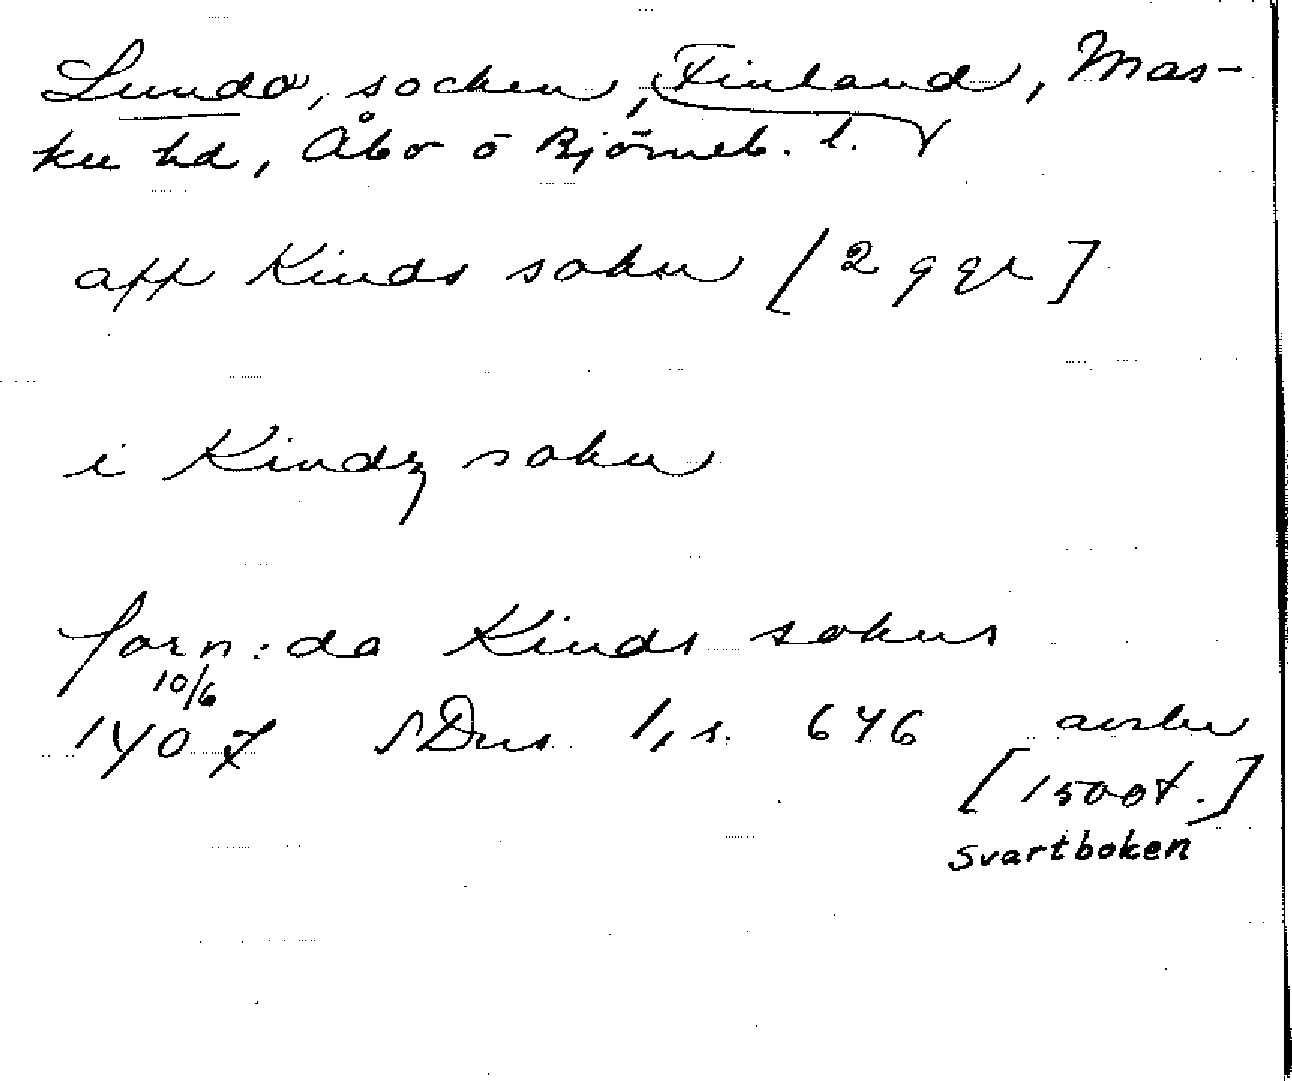 Lundo, socken, Finland, Mas-
ku hd, Åbo o Björneb. l.
aff Kinds sokn [2 ggr]
i Kindz sokn
forn:da Kinds sokns
10/6
1407 SDns 1, s. 646 avskr
[1500t.]
Svartboken